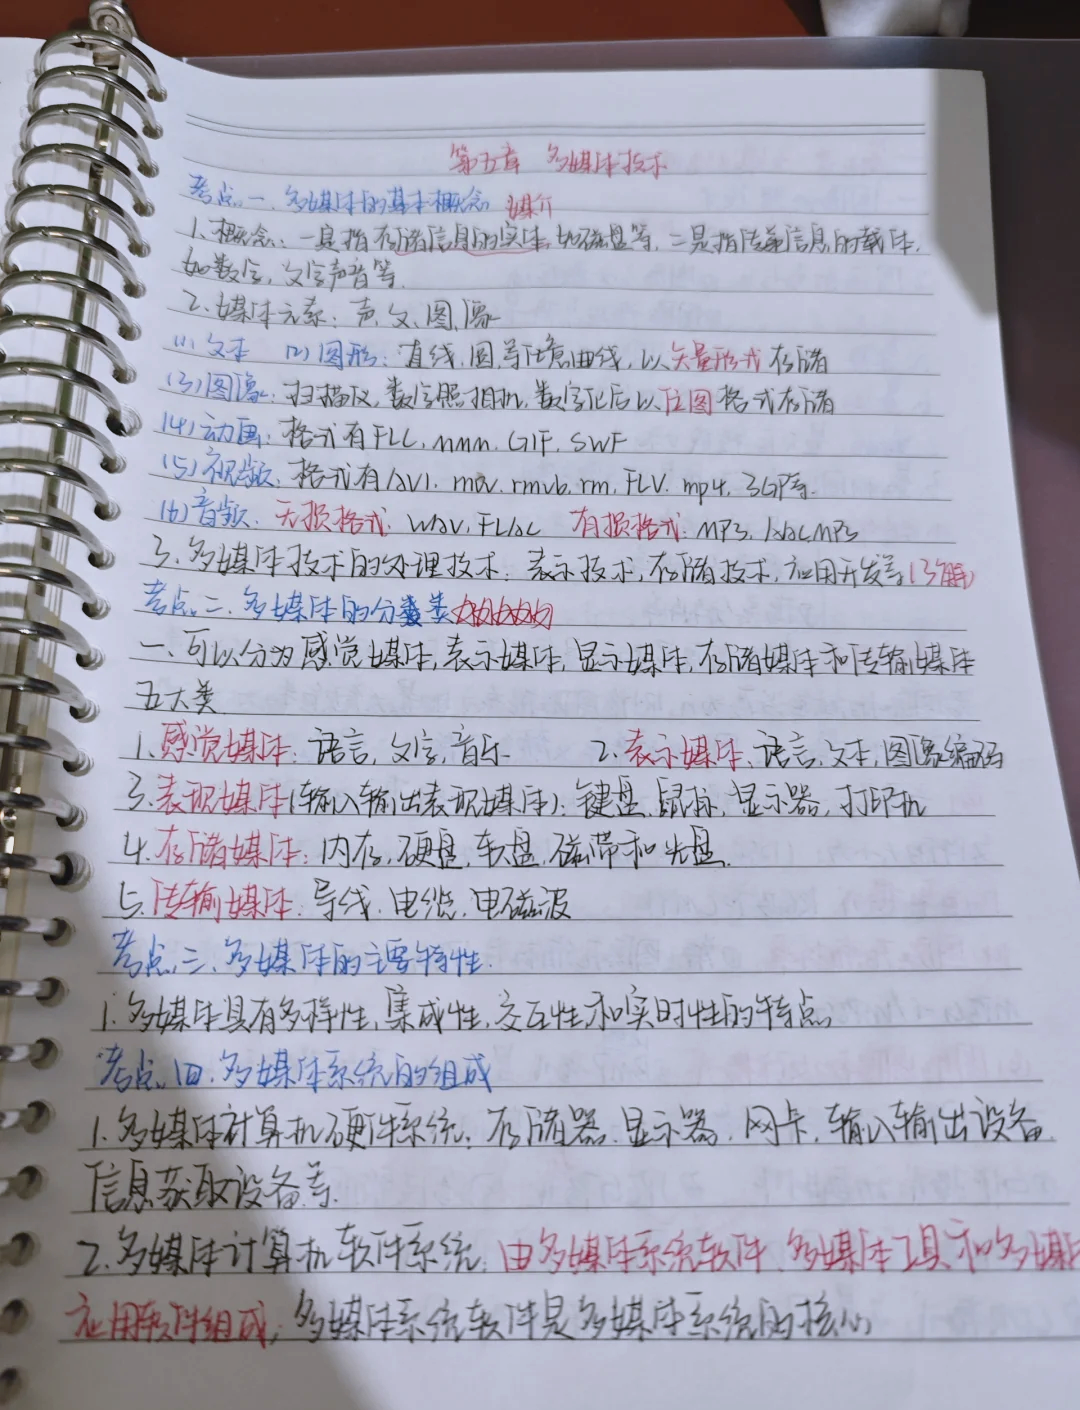 第五章 多媒体技术
考点一、多媒体的基本概念 媒介
1.概念:一是指存储信息的实体,如磁盘等,二是指传递信息的载体,
如数字,文字声音等.
2.媒体元素:声、文、图、像
(1)文本 (2)图形:直线、圆等任意曲线,以矢量形式存储
(3)图像:扫描仪,数字照相机,数字化后以位图格式存储
(4)动画:格式有FLC,mmm,GIF,SWF
(5)视频、格式有AVI.mov.rmvb.rm,FLV.mp4,3GP等.
(6)音频、无损格式:wav,FLAC 有损格式:MP3,AAC,MP3
3.多媒体技术的处理技术:表示技术,存储技术,应用开发等(了解)
考点二、多媒体的分类
一、可以分为感觉媒体,表示媒体,显示媒体,存储媒体和传输媒体
五大类
1.感觉媒体:语言,文字,音乐 2.表示媒体、语言、文本,图像编码
3.表现媒体(输入输出表现媒体):键盘,鼠标,显示器,打印机
4.存储媒体:内存,硬盘,软盘,磁带和光盘.
5.传输媒体:导线.电缆.电磁波
考点三、多媒体的主要特性.
1.多媒体具有多样性,集成性,交互性和实时性的特点
考点四.多媒体系统的组成
1.多媒体计算机硬件系统:存储器.显示器.网卡,输入输出设备.
信息获取设备等.
2.多媒体计算机软件系统:由多媒体系统软件、多媒体工具和多媒体
应用软件组成,多媒体系统软件是多媒体系统的核心